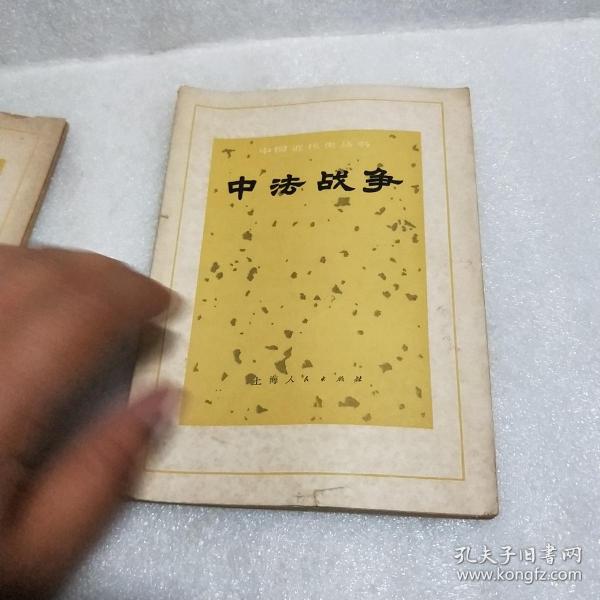 中国近代史丛书
中法战争
上海人民出版社
孔夫子旧书网
www.kongfz.com